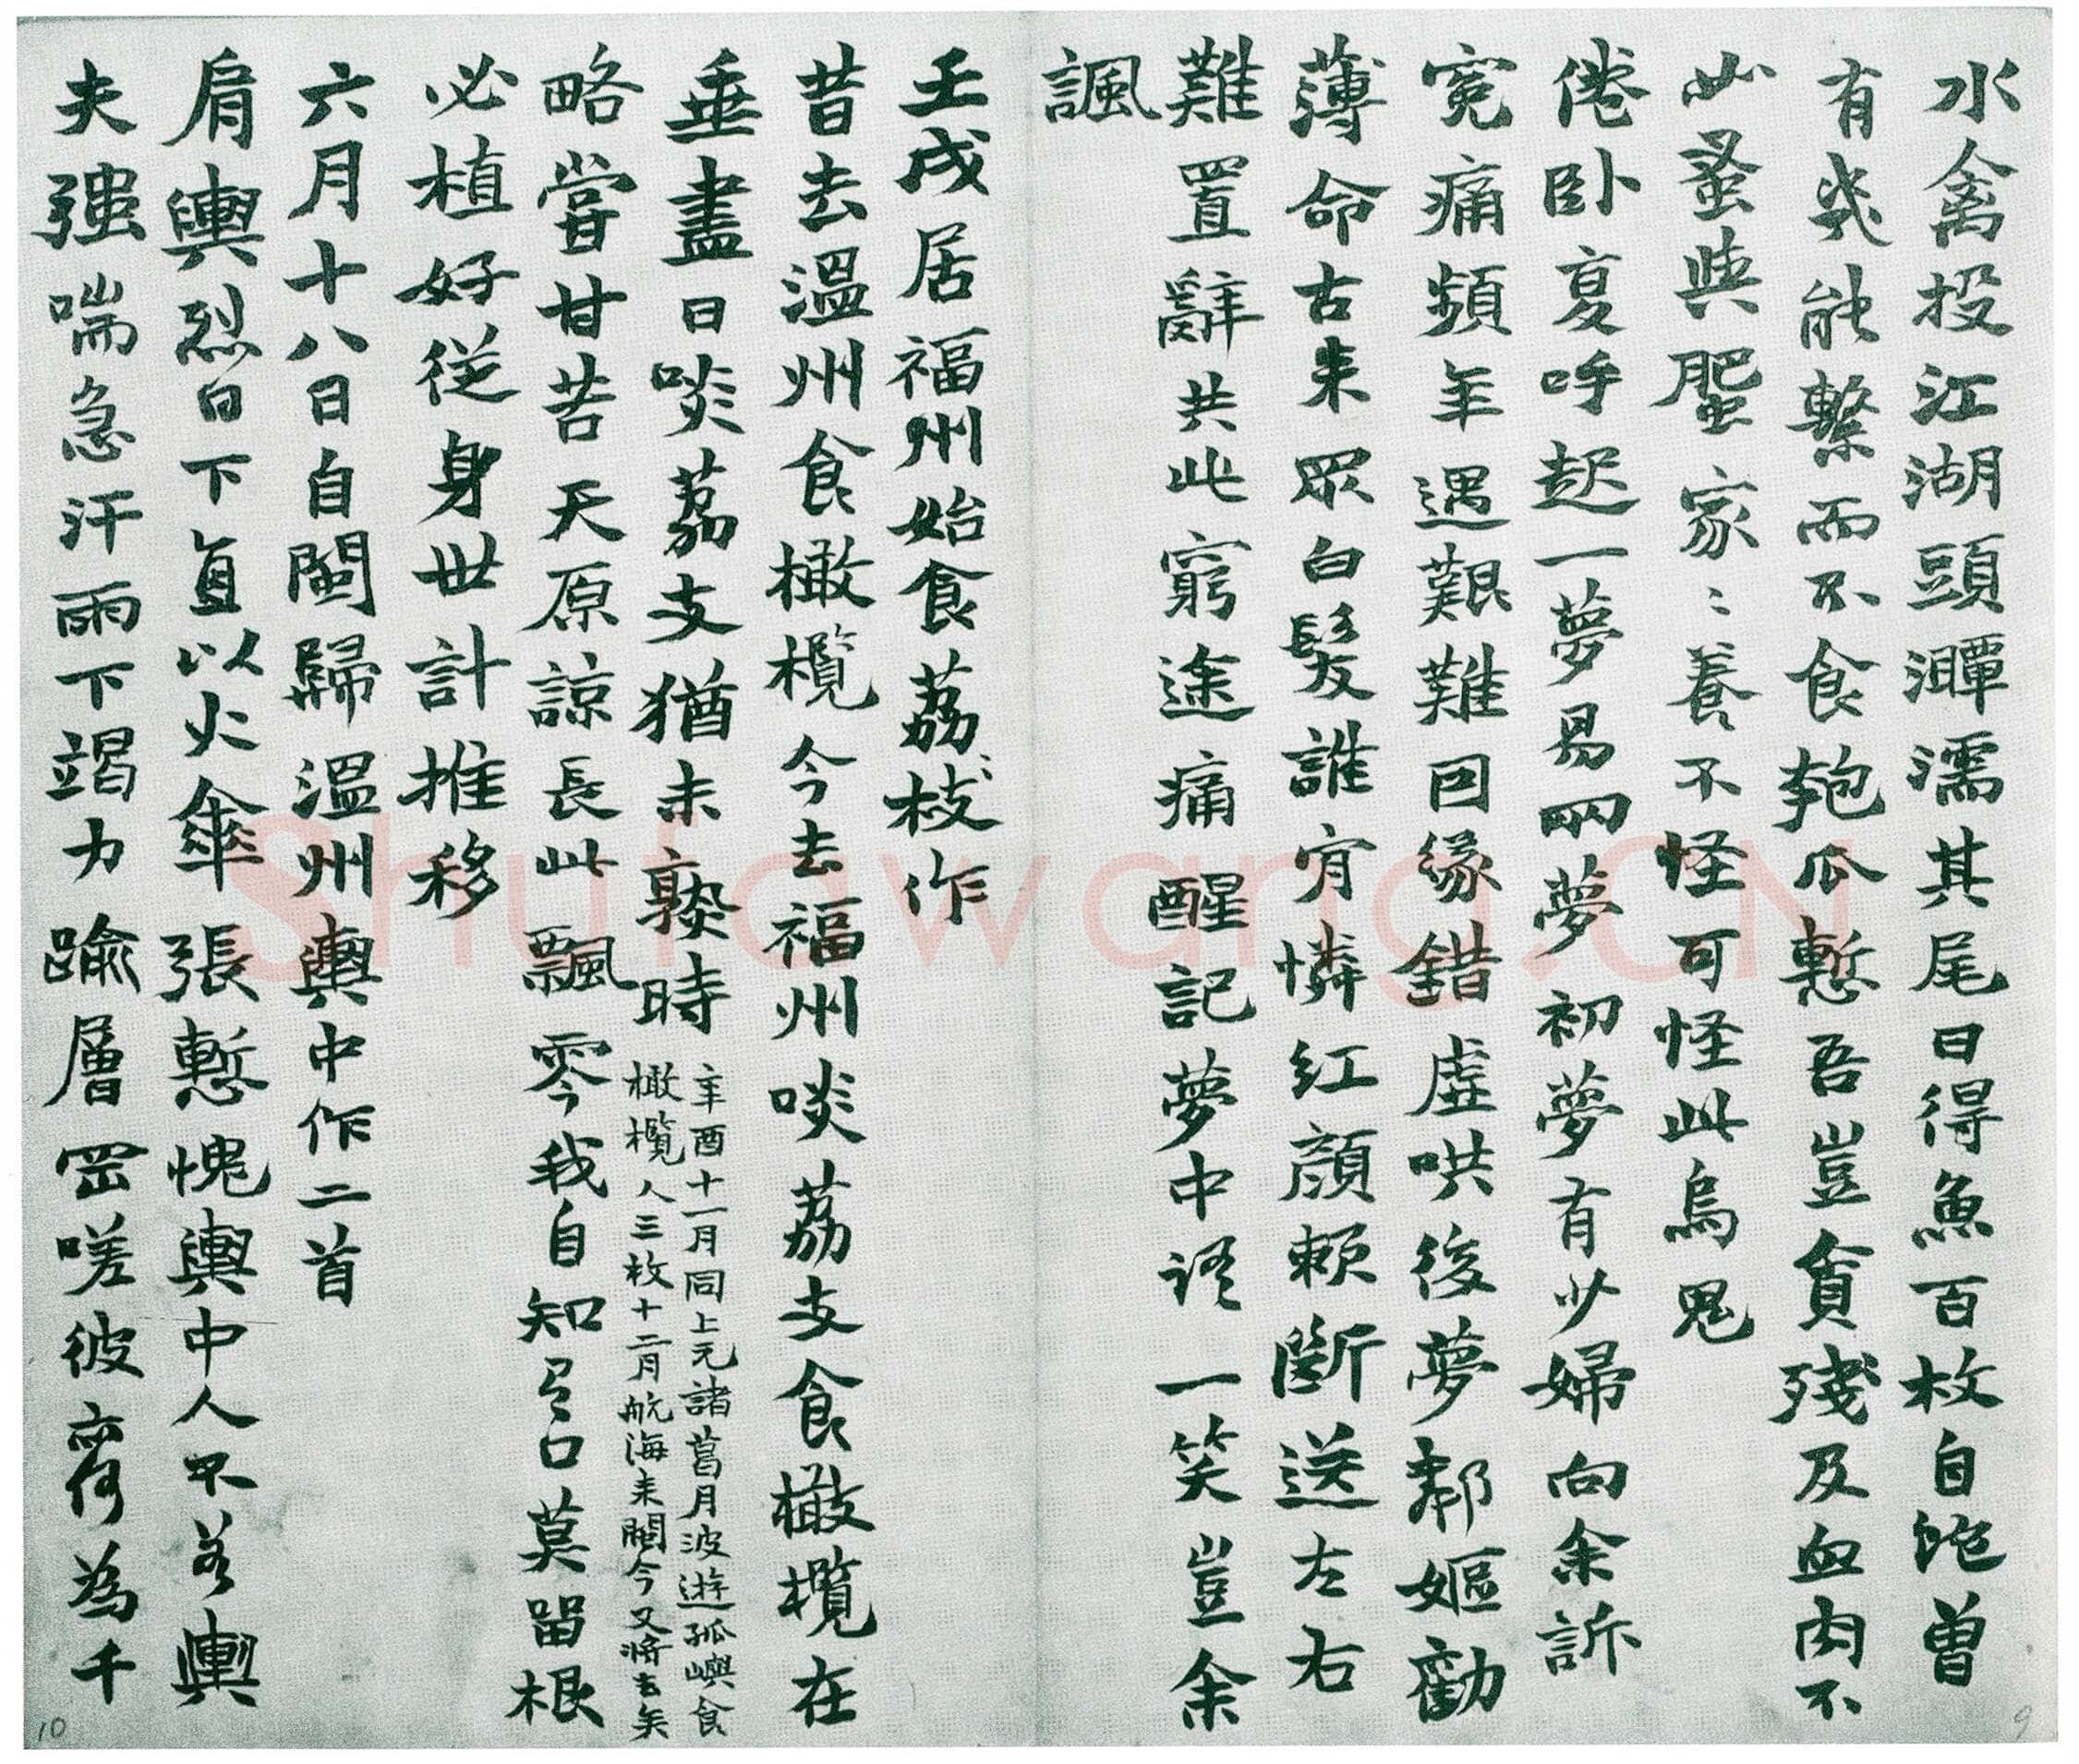 水禽投江湖頭潭濡其尾日得魚百枚自詑曾
有幾能繫而不食匏瓜慙吾豈貪殘及血肉不
必蚤與肥家〻養不怪可怪此烏鬼
倦卧夏呼起一夢易兩夢初夢有少婦向余訴
冤痛頻年遇艱難回緣錯虛哄後夢鄰嫗勸
薄命古来眾白髮誰肯憐紅顏賴斷送左右
難置辭共此窮途痛醒記夢中語一笑豈余
諷
壬戌居福州始食荔枝作
昔去溫州食橄欖今去福州啖荔支食橄欖在
垂盡日啖荔支猶未孰時
辛酉十一月同上元諸葛月波遊孤嶼食
橄欖人三枚十二月航海来閩今又將去矣
略嘗甘苦天原諒長此飄零我自知可口莫留根
必植好從身世計推移
六月十八日自閩歸溫州輿中作二首
肩輿烈日下直以火傘張慙愧輿中人不若輿
夫强喘急汗雨下竭力踰層岡嗟彼亦何為千
10
9
Shufawang.CN